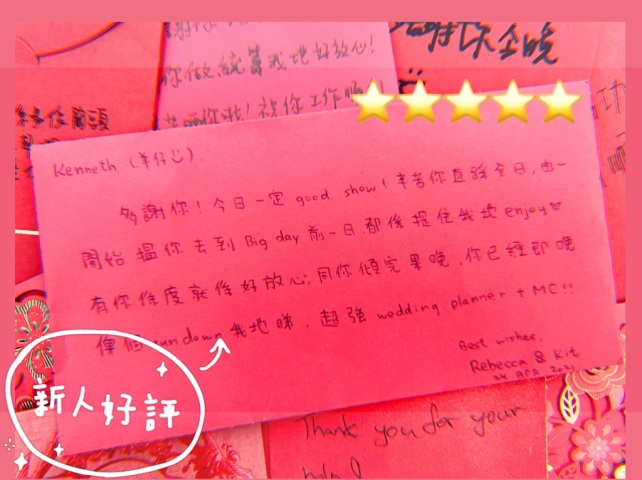 你做統籌我地好放心!
祝你工作順
Kenneth (羊仔).
多謝你! 今日一定 good show! 辛苦你直踩全日, 由一
開始搵你去到 Big day 前一日都係提住我地 enjoy♡
有你係度就係好放心, 同你傾完果晚, 你已經即晚
俾個 rundown 我地睇, 超強 wedding planner + MC!!
Best wishes,
Rebecca & Kit
24 APR 2021
新人好評
Thank you for your
help!